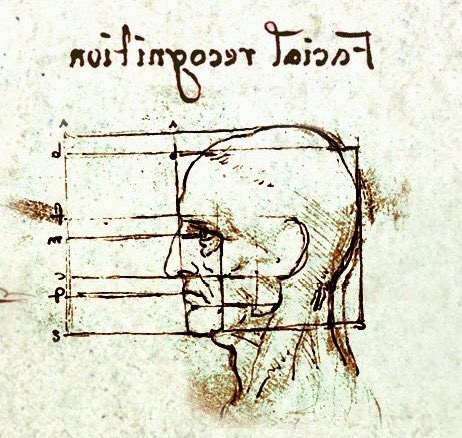 Facial recognition
d
m
s